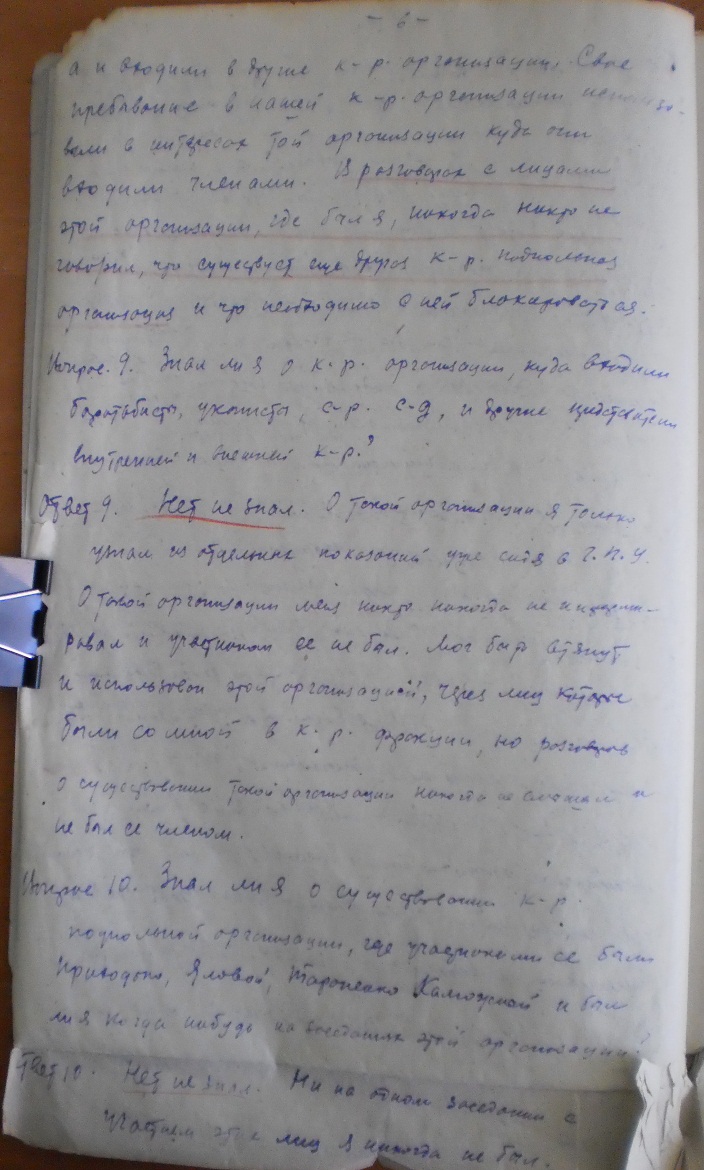 - 6 -
а и входили в другие к-р. организации. Свое
пребывание в нашей к-р. организации использо-
вали в интересах той организации куда они
входили членами. В разговорах с лицами
этой организации, где был я, никогда никто не
говорил, что существует еще другая к-р. подпольная
организация и что необходимо с ней блокироваться.
Вопрос. 9. Знал ли я о к.р. организации, куда входили
боротьбисты, укаписты, с-р. с-д, и другие представители
внутренней и внешней к-р.?
Ответ 9. Нет не знал. О такой организации я только
узнал из отдельных показаний уже сидя в Г.П.У.
О такой организации меня никто никогда не информи-
ровал и участником ее не был. Мог быть втянут
и использован этой организацией, через лиц которые
были со мной в к.р. фракции, но разговоров
о существовании такой организации никогда не слышал и
не был ее членом.
Вопрос 10. Знал ли я о существовании к-р.
подпольной организации, где участниками ее были
Приходько, Яловой, Тараненко и был
ли я когда нибудь на заседаниях этой организации?
Ответ 10. Нет не знал. Ни на одном заседании с
участием этих лиц я никогда не был.